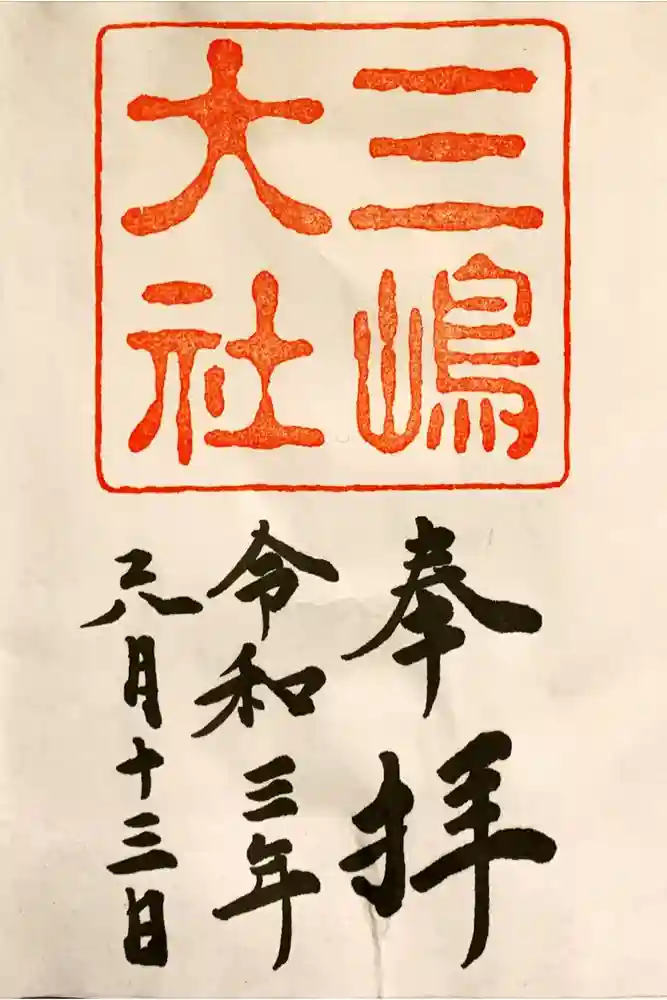 三嶋
大社
奉拝
令和三年
元月十三日